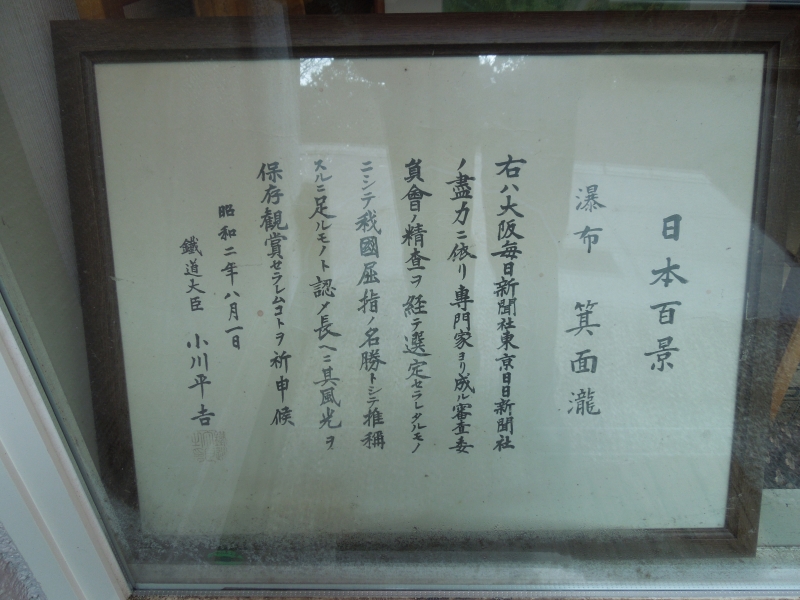 日本百景
瀑布　箕面瀧
右ハ大阪毎日新聞社東京日日新聞社
ノ盡力ニ依リ專門家ヨリ成ル審査委
員會ノ精査ヲ経テ選定セラレタルモノ
ニシテ我國屈指ノ名勝トシテ推称
スルニ足ルモノト認メ長ヘニ其風光ヲ
保存観賞セラレムコトヲ祈申候
昭和二年八月一日
鐵道大臣　小川平吉